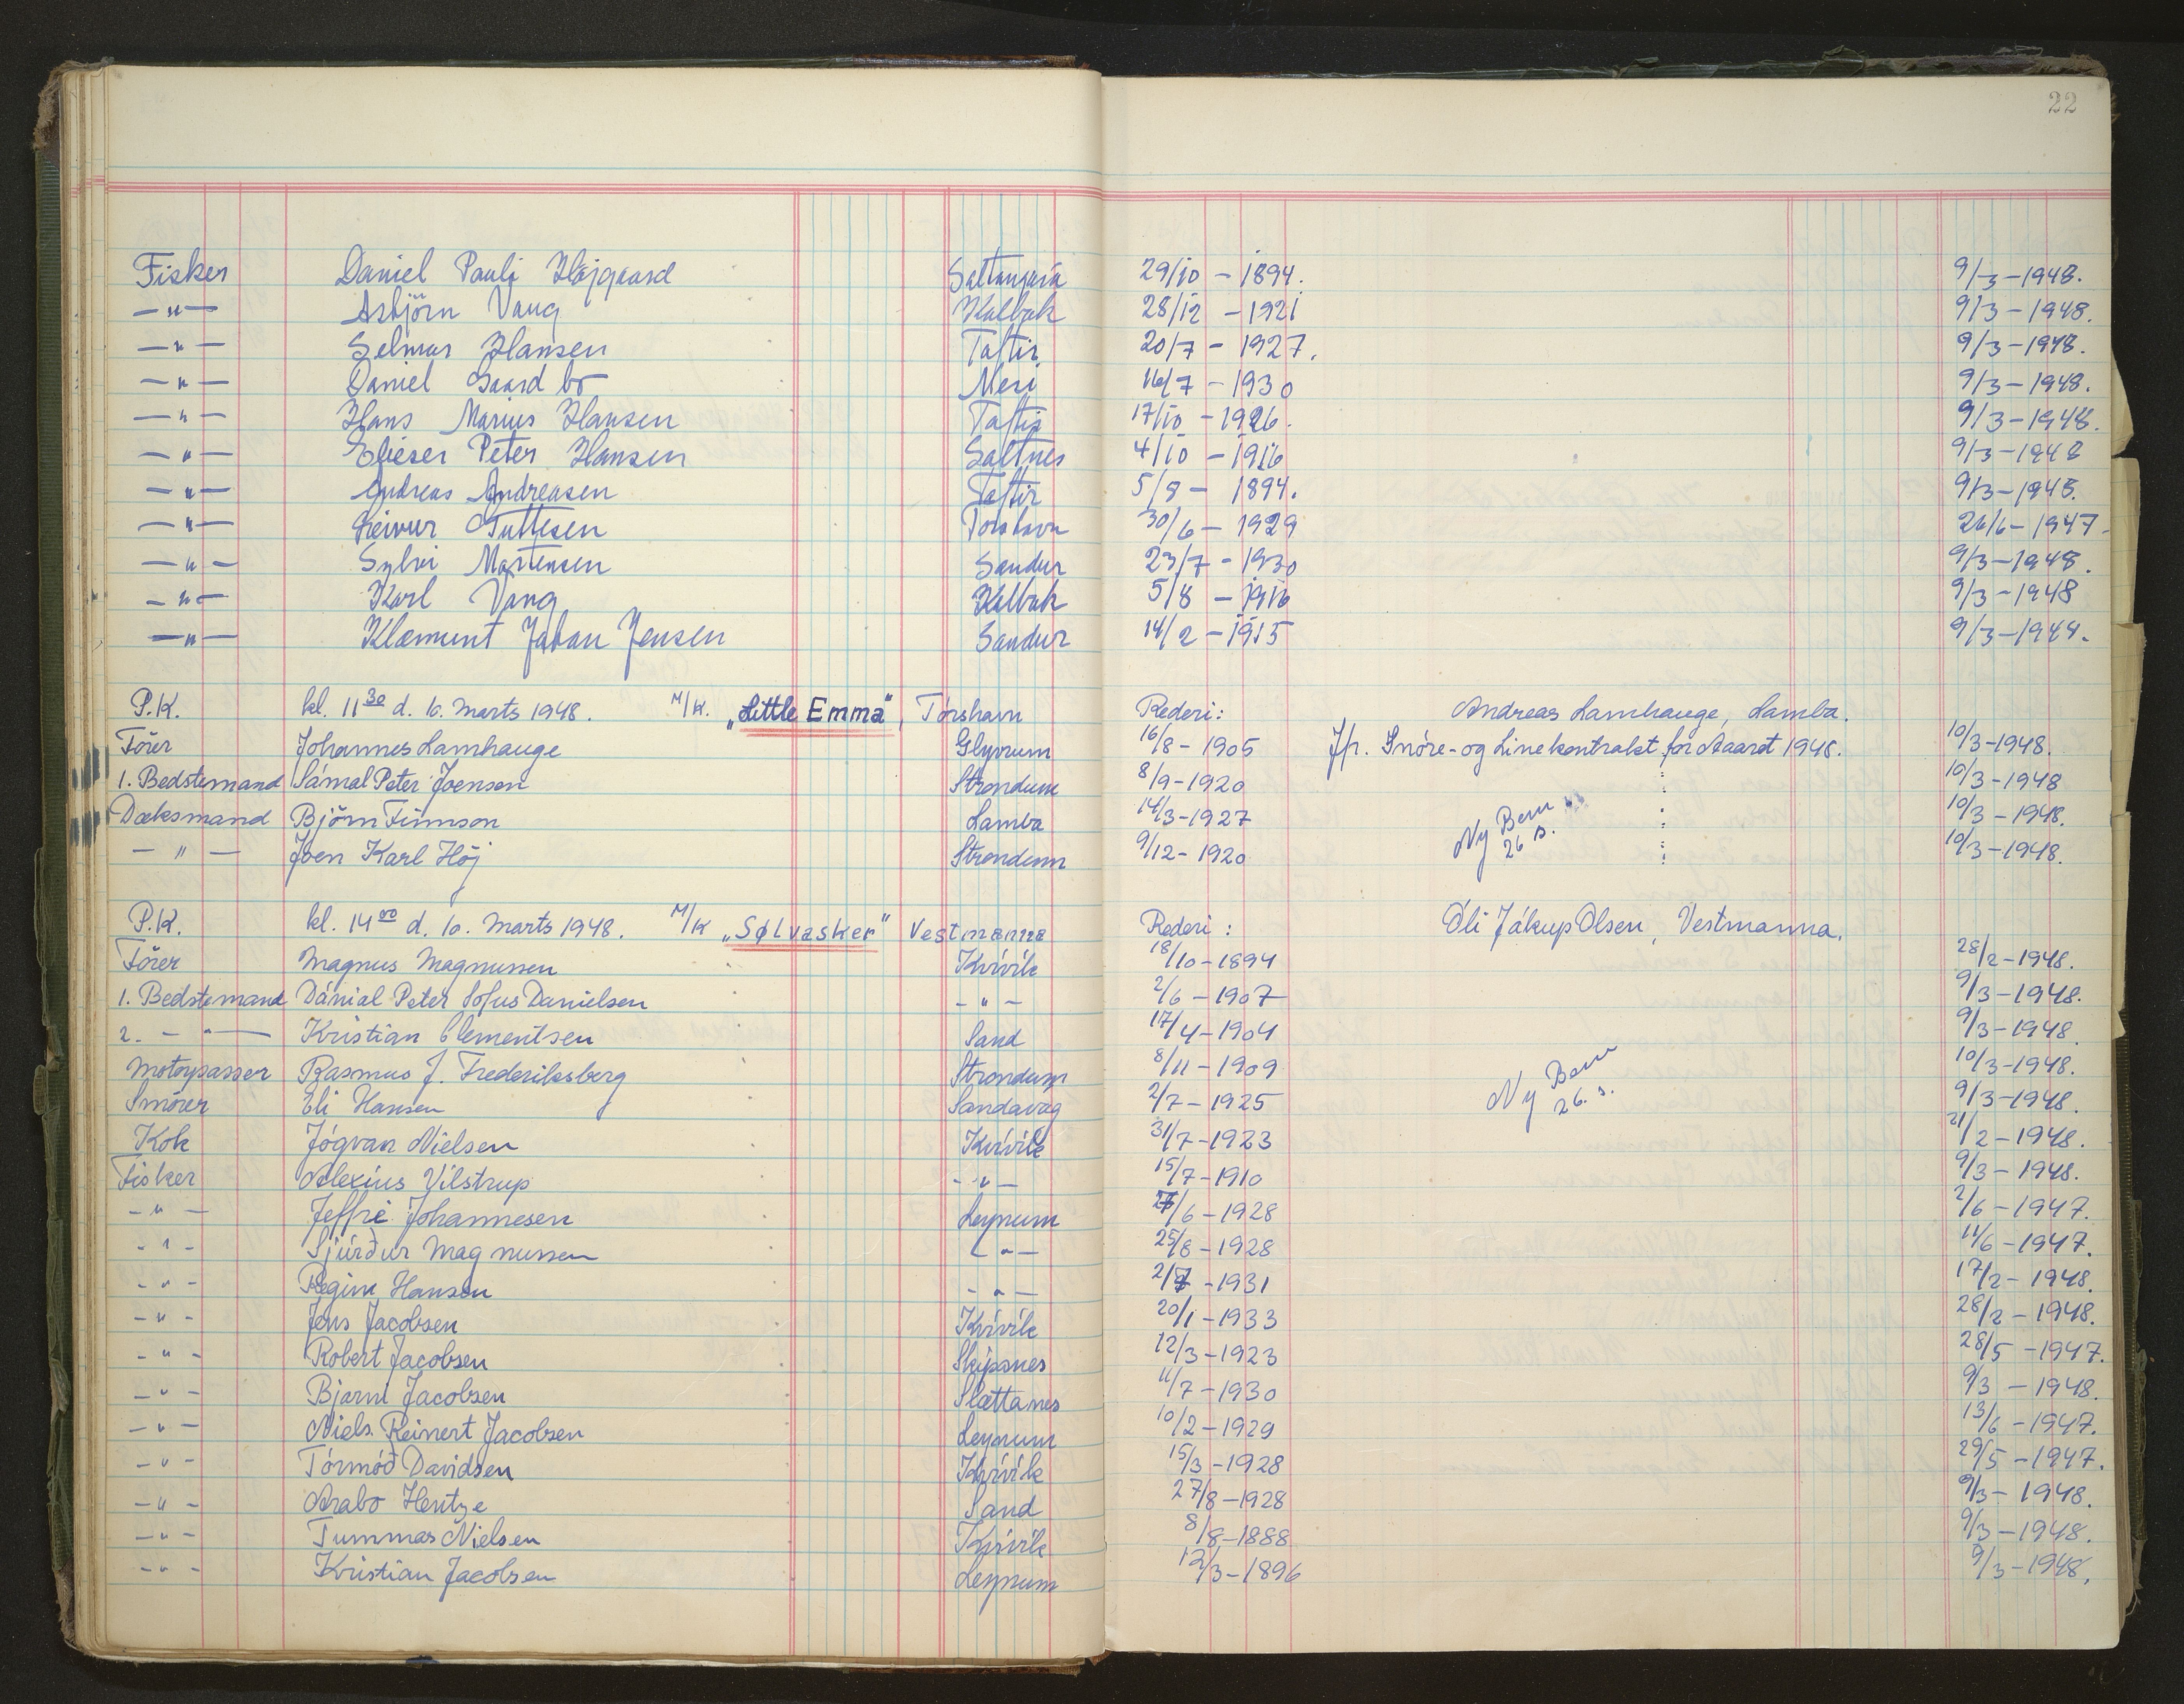 22
Fisker Daniel Pauli Højgaard Saltangará 29/10 - 1894. 9/3-1948.
-"- Asbjörn Vang Kalbak 28/12 - 1921 9/3-1948.
-"- Selmar Hansen Toftir 20/7 - 1927. 9/3-1948.
-"- Daniel Gaard Nesi 16/7 - 1930 9/3-1948.
-"- Hans Marius Hansen Toftir 17/10 - 1926. 9/3-1948.
-"- Elieser Peter Hansen Saltnes 4/10 - 1916 9/3-1948
-"- Andreas Andreasen Toftir 5/8 - 1894. 9/3-1948.
-"- Leivur Tuttesen Torshavn 30/6 - 1929 26/6-1947-
-"- Sylvi Mortensen Sandur 23/7 - 1930 9/3-1948.
-"- Karl Vang Kalbak 5/8 - 1916 9/3-1948
-"- Klæmunt Jensen Sandur 14/2 - 1915 9/3-1948.
P.K. kl. 11 30 d. 10. Marts 1948. M/K. „Little Emma", Tórshavn Rederi: Andreas Lamhauge, Lamba.
Förer Johannes Lamhauge Glyvrum 16/8 - 1905 Jfr. Snöre- og Linekontrakt for Aaret 1948. 10/3-1948.
1. Bedstemand Sámal Peter Joensen Strondum 8/9-1920 10/3-1948
Dæksmand Björn Finnson Lamba 14/3-1927 Ny Bem 10/3-1948.
- " - Joen Karl Höj Strondum 9/12-1920 26 10/3-1948.
P.K. kl. 14 00 d. 10. Marts 1948. M/K „Sølvasker" Vestmanna Rederi: Óli Jákup Olsen, Vestmanna.
Förer Magnus Magnussen Kvívík 18/10-1894 28/2-1948.
1. Bedstemand Dánial Peter Sofus Danielsen - " - 2/6-1907 9/3-1948.
2. - " - Kristian Clementsen Sand 17/4-1904 9/3-1948.
Motorpasser Rasmus J. Frederiksberg Strondum 8/11-1909 Ny Bem 10/3-1948.
Smörer Eli Hansen Sandavág 2/7-1925 26. 3. 9/3-1948.
Kok Jógvan Nielsen Kvívík 31/7-1923 21/2-1948.
Fisker Alexius Vilstrup - " - 15/7-1910 9/3-1948.
- " - Jeffrié Johannesen Leynum /6-1928 2/6-1947.
- " - Sjúrður Magnussen - " - 25/8-1928 11/6-1947.
- " - Regin Hansen - " - 2/7-1931 17/2-1948.
- " - Jens Jacobsen Kvívík 20/1-1933 28/2-1948.
- " - Robert Jacobsen Skipsnes 12/3-1923 28/5-1947.
- " - Bjarni Jacobsen Slættanes 11/7-1930 9/3-1948.
- " - Niels Reinert Jacobsen Leynum 10/2-1929 13/6-1947.
- " - Tórmóð Davidsen Kvívík 15/3-1928 29/5-1947.
- " - Arabo Hentze Sand 27/8-1928 9/3-1948.
- " - Tummas Nielsen Kvívík 8/8-1888 9/3-1948.
- " - Kristian Jacobsen Leynum 12/3-1896 9/3-1948.